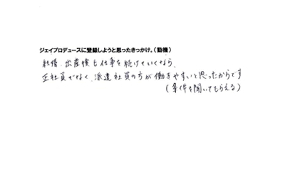 ジェイプロデュースに登録しようと思ったきっかけ。（動機）
結婚、出産後も仕事を続けていくなら、
正社員でなく、派遣社員の方が働きやすいと思ったからです
（条件を聞いてもらえる）